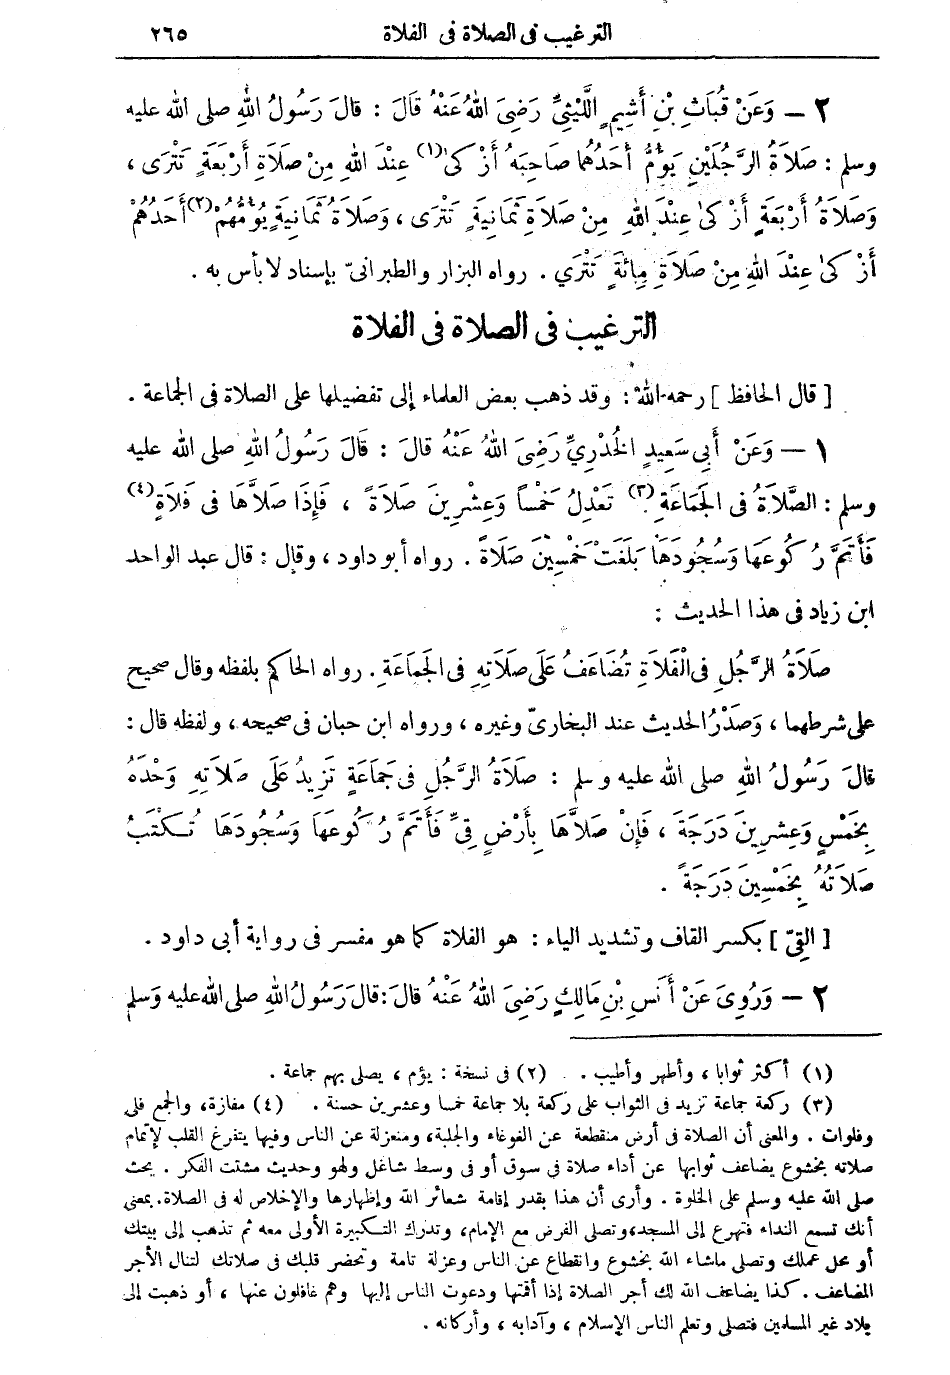 الترغيب فى الصلاة فى الفلاة ٢٦٥
٢ — وَعَنْ قُبَاثِ بْنِ أَشِيمِ اللَّيْثِيِّ رَضِىَ اللهُ عَنْهُ قَالَ : قَالَ رَسُولُ اللهِ صلى الله عليه
وسلم : صَلَاةُ الرَّجُلَيْنِ يَؤُمُّ أَحَدُهُمَا صَاحِبَهُ أَزْكَىٰ (١) عِنْدَ اللهِ مِنْ صَلَاةِ أَرْبَعَةٍ تَتْرَى ،
وَصَلَاةُ أَرْبَعَةٍ أَزْكَىٰ عِنْدَ اللهِ مِنْ صَلَاةِ ثَمَانِيَةٍ تَتْرَى ، وَصَلَاةُ ثَمَانِيَةٍ يُؤَمُّهُمْ (٢) أَحَدُهُمْ
أَزْكَىٰ عِنْدَ اللهِ مِنْ صَلَاةِ مِائَةٍ تَتْرَي . رواه البزار والطبرانىّ بإسناد لا بأس به .
الترغيب فى الصلاة فى الفلاة
[ قال الحافظ ] رحمه الله : وقد ذهب بعض العلماء إلى تفضيلها على الصلاة فى الجماعة .
١ — وَعَنْ أَبِى سَعِيدٍ الْخُدْرِيِّ رَضِىَ اللهُ عَنْهُ قَالَ : قَالَ رَسُولُ اللهِ صلى الله عليه
وسلم : الصَّلَاةُ فى الْجَمَاعَةِ (٣) تَعْدِلُ خَمْسًا وَعِشْرِينَ صَلَاةً ، فَإِذَا صَلَّاهَا فِى فَلَاةٍ (٤)
فَأَتَمَّ رُكُوعَهَا وَسُجُودَهَا بَلَغَتْ خَمْسِينَ صَلَاةً . رواه أبو داود ، وقال : قال عبد الواحد
ابن زياد فى هذا الحديث :
صَلَاةُ الرَّجُلِ فِى الْفَلَاةِ تُضَاعَفُ عَلَى صَلَاتِهِ فِى الْجَمَاعَةِ . رواه الحاكم بلفظه وقال صحيح
على شرطهما ، وَصَدْرُ الحديث عند البخارىّ وغيره ، ورواه ابن حبان فى صحيحه ، ولفظه قال :
قَالَ رَسُولُ اللهِ صلى الله عليه وسلم : صَلَاةُ الرَّجُلِ فِى جَمَاعَةٍ تَزِيدُ عَلَى صَلَاتِهِ وَحْدَهُ
بِخَمْسٍ وَعِشْرِينَ دَرَجَةً ، فَإِنْ صَلَّاهَا بِأَرْضِ قِىٍّ فَأَتَمَّ رُكُوعَهَا وَسُجُودَهَا تُكْتَبُ
صَلَاتُهُ بِخَمْسِينَ دَرَجَةً .
[ القِىّ ] بكسر القاف وتشديد الياء : هو الفلاة كما هو مفسر فى رواية أبى داود .
٢ — وَرُوِىَ عَنْ أَنَسِ بْنِ مَالِكٍ رَضِىَ اللهُ عَنْهُ قَالَ : قَالَ رَسُولُ اللهِ صلى الله عليه وسلم
(١) أكثر ثوابا ، وأطهر وأطيب . (٢) فى نسخة : يؤم ، يصلى بهم جماعة .
(٣) ركعة جماعة تزيد فى الثواب على ركعة بلا جماعة خمسا وعشرين حسنة . (٤) مفازة، والجمع فلى
وفلوات . والمعنى أن الصلاة فى أرض منقطعة عن الغوغاء والجلبة، ومنعزلة عن الناس وفيها يتفرغ القلب لإتمام
صلاته بخشوع يضاعف ثوابها عن أداء صلاة فى سوق أو فى وسط شاغل ولهو وحديث مشتت الفكر . يحث
صلى الله عليه وسلم على الخلوة . وأرى أن هذا بقدر إقامة شعائر الله وإظهارها والإخلاص له فى الصلاة . بمعنى
أنك تسمع النداء فتهرع إلى المسجد، وتصلى الفرض مع الإمام، وتدرك التكبيرة الأولى معه ثم تذهب إلى بيتك
أو محل عملك وتصلى ماشاء الله بخشوع وانقطاع عن الناس وعزلة تامة وتحضر قلبك فى صلاتك لتنال الأجر
المضاعف . كذا يضاعف الله لك أجر الصلاة إذا أقمتها ودعوت الناس إليها وهم غافلون عنها ، أو ذهبت إلى
بلاد غير المسلمين فتصلى وتعلم الناس الإسلام ، وآدابه ، وأركانه .